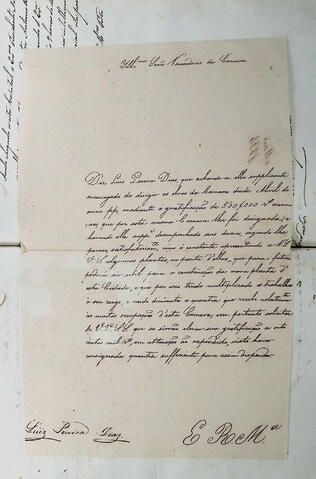 Illmos Senrs Vereadores da Camara
Diz Luis Pereira Dias, que achando-se elle supplicante
encarregado de dirigir as obras da Camara desde Abril do
anno pp, mediante a gratificação de 500$000 rs annu
aes que por esta mesma Camara lhe foi designada, e
havendo elle suppe desempenhado seus deveres, segundo lhe
parece, satisfatoriamte, não é constante apresentando a VV.
SS. algumas plantas em ponto d'elles, que para o futuro
poderão ser util para a confecção da nova planta d'
esta Cidade, e que por esse tendo multiplicado os trabalhos
a seu cargo, e sendo diminuta a quantia que recebe relativamte
as muitas occupações d'esta Camara, vem portanto solicitar
de Vas. SS. que se sirvão elevar sua gratificação a oito
centos mil rs, em attenção ao expendido, visto haver
consignada quantia sufficiente para assim dispender.
E R Mce
Luiz Pereira Dias